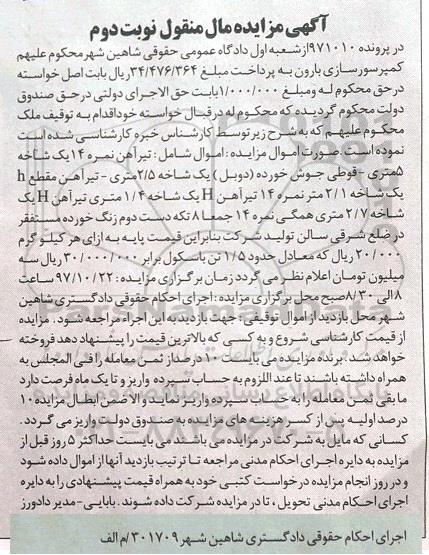 آگهی مزایده مال منقول نوبت دوم
در پرونده ۹۷۱۰۱۰ از شعبه اول دادگاه عمومی حقوقی شاهین شهر محکوم علیهم
کمپرسور سازی بارون به پرداخت مبلغ ۳۴/۴۷۶/۳۶۴ ریال بابت اصل خواسته
در حق محکوم له و مبلغ ۱/۰۰۰/۰۰۰ بابت حق الاجرای دولتی در حق صندوق
دولت محکوم گردیده که محکوم له در قبال خواسته خود اقدام به توقیف ملک
محکوم علیهم که به شرح زیر توسط کارشناس خبره کارشناسی شده است
نموده است. صورت اموال مزایده: اموال شامل: تیرآهن نمره ۱۴ یک شاخه
۵متری - قوطی جوش خورده (دوبل) یک شاخه ۲/۵ متری - تیرآهن مقطع h
یک شاخه ۲/۱ متر نمره ۱۴ تیرآهن H یک شاخه ۱/۴ متری تیرآهن H یک
شاخه ۲/۷ متری همگی نمره ۱۴ جمعا ۸ تکه دست دوم زنگ خورده مستقفر
در ضلع شرقی سالن تولید شرکت بنابراین قیمت پایه به ازای هر کیلو گرم
۲۰/۰۰۰ ریال که معادل حدود ۱/۵ تن باسکول برابر ۳۰/۰۰۰/۰۰۰ ریال سه
میلیون تومان اعلام نظر می گردد زمان برگزاری مزایده: ۹۷/۱۰/۲۲ ساعت
۸ الی ۸/۳۰ صبح محل برگزاری مزایده: اجرای احکام حقوقی دادگستری شاهین
شهر محل بازدید از اموال توقیفی: جهت بازدید به این اجراء مراجعه شود. مزایده
از قیمت کارشناسی شروع و به کسی که بالاترین قیمت را پیشنهاد دهد فروخته
خواهد شد. برنده مزایده می بایست ۱۰ درصد از ثمن معامله را فی المجلس به
همراه داشته باشند تا عند اللزوم به حساب سپرده واریز و تا یک ماه فرصت دارد
ما بقی ثمن معامله را به حساب سپرده واریز نماید والا ضمن ابطال مزایده ۱۰
درصد اولیه پس از کسر هزینه های مزایده به صندوق دولت واریز می گردد.
کسانی که مایل به شرکت در مزایده می باشند می بایست حداکثر ۵ روز قبل از
مزایده به دایره اجرای احکام مدنی مراجعه تا ترتیب بازدید آنها از اموال داده شود
و در روز انجام مزایده درخواست کتبی خود به همراه قیمت پیشنهادی را به دایره
اجرای احکام مدنی تحویل، تا در مزایده شرکت داده شوند. بابایی-مدیر دادورز
اجرای احکام حقوقی دادگستری شاهین شهر ۳۰۱۷۰۹/م الف